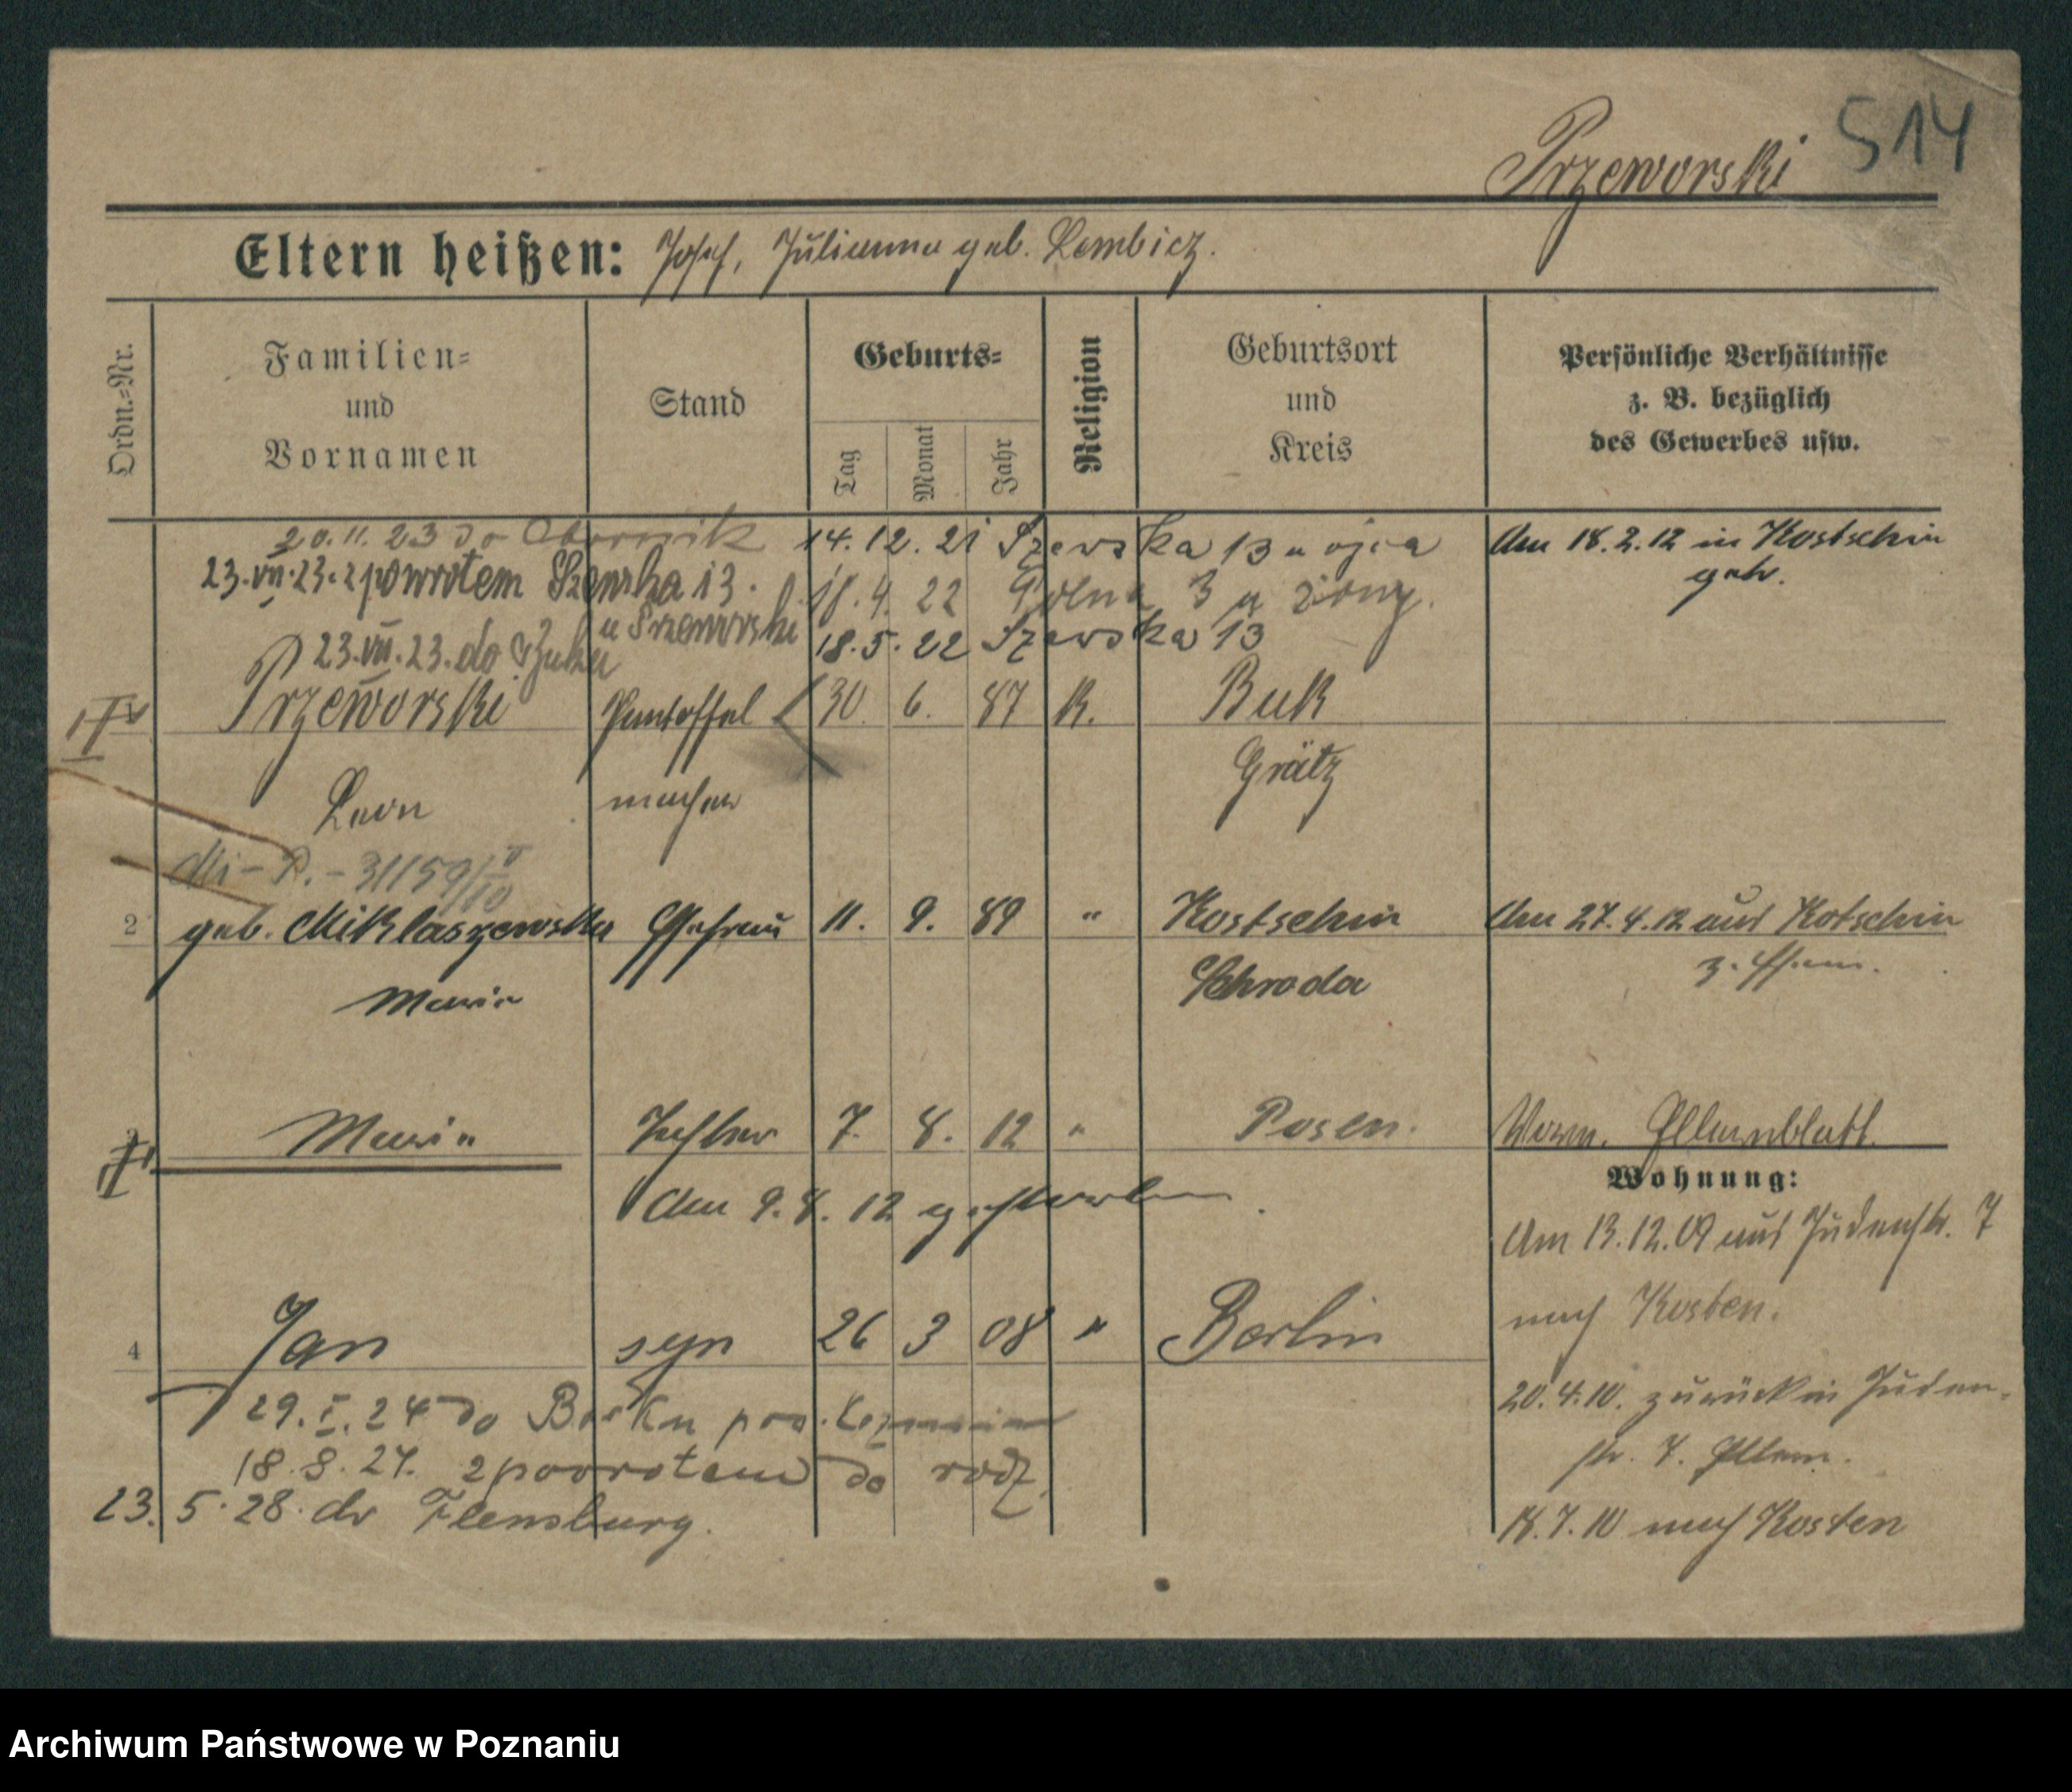 514
Przeworski
Eltern heißen: Josef, Julianna geb. Lembicz.
Ordn.=Nr.
Familien=
und
Vornamen
Stand
Geburts=
Tag
Monat
Jahr
Religion
Geburtsort
und
Kreis
Persönliche Verhältnisse
z. B. bezüglich
des Gewerbes usw.
20.11.23 do Obornik
14.12.21 Szewska 13 u ojca
Am 18.2.12 in Kostschin
geh.
23.VII.23. z powrotem Szewska 13.
18.4.22 Polna 3 u żony.
u Przeworski
18.5.22 Szewska 13
23.VII.23. do
Przeworski Pantoffel 30. 6. 87 K. Buk
Leon macher Grätz
Mi-P.-31159/10
2 geb. Miklaszewska Ehefrau 11. 9. 89 " Kostschin Am 27.4.12 aus Kotschin
Maria Schroda z. Ehem.
3 Maria Tochter 7. 8. 12 " Posen. Vorm. Elternblatt.
Am 9.8.12 gestorben
Wohnung:
Am 13.12.09 aus Judenstr. 7
nach Kosten.
4 Jan syn 26 3 08 " Berlin
20.4.10. zurück in Juden-
str. 7. Eltern.
29.I.24 do Borku pow.
18.8.27. z powrotem do rodz.
23.5.28. do Flensburg.
18.7.10 nach Kosten
Archiwum Państwowe w Poznaniu